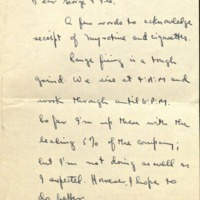 Dear George & Flo.
A few words to acknowledge
receipt of my     and cigarettes.
Range firing is a tough
grind. We rise at 4 A.M and
work through until 6 P.M.
So far I'm up there with the
leading 5% of the company;
but I'm not doing as well as
I expected. However, I hope to
do better